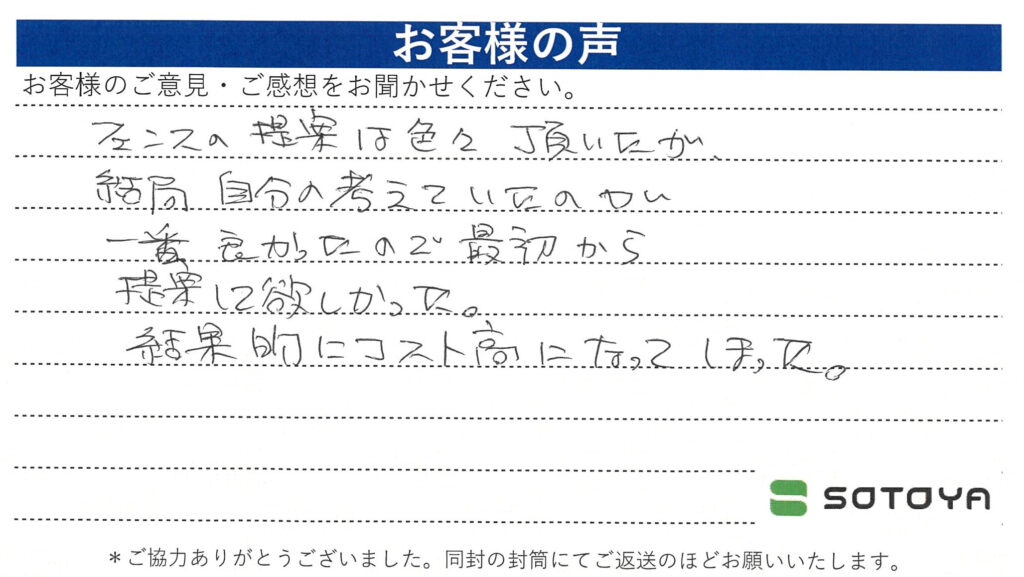 お客様の声
お客様のご意見・ご感想をお聞かせください。
フェンスの提案は色々頂いたが、
結局自分の考えていたのがい
一番良かったので最初から
提案して欲しかった。
結果的にコスト高になってしまった。
SOTOYA
＊ご協力ありがとうございました。同封の封筒にてご返送のほどお願いいたします。